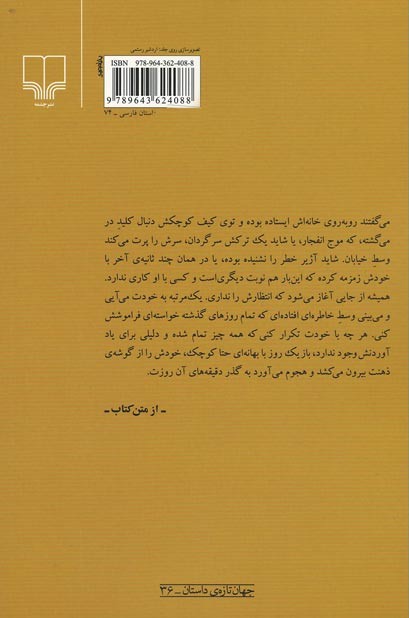 تصویرسازی روی جلد: اردشیر رستمی
ISBN 978-964-362-408-8
9 789643 624088
داستان فارسی ـ ۷۴
نشرچشمه
می‌گفتند روبه‌روی خانه‌اش ایستاده بوده و توی کیف کوچکش دنبال کلیدِ در
می‌گشته، که موج انفجار، یا شاید یک ترکش سرگردان، سرش را پرت می‌کند
وسطِ خیابان. شاید آژیر خطر را نشنیده بوده، یا در همان چند ثانیه‌ی آخر با
خودش زمزمه کرده که این‌بار هم نوبت دیگری‌است و کسی با او کاری ندارد.
همیشه از جایی آغاز می‌شود که انتظارش را نداری. یک‌مرتبه به خودت می‌آیی
و می‌بینی وسطِ خاطره‌ای افتاده‌ای که تمام روزهای گذشته خواسته‌ای فراموشش
کنی. هر چه با خودت تکرار کنی‌که همه چیز تمام شده و دلیلی برای یاد
آوردنش وجود ندارد، باز یک روز با بهانه‌ای حتا کوچک، خودش را از گوشه‌ی
ذهنت بیرون می‌کشد و هجوم می‌آورد به گذر دقیقه‌های آن روزت.
ـ از متن کتاب ـ
جهان تازه‌ی داستان ـ ۳۶